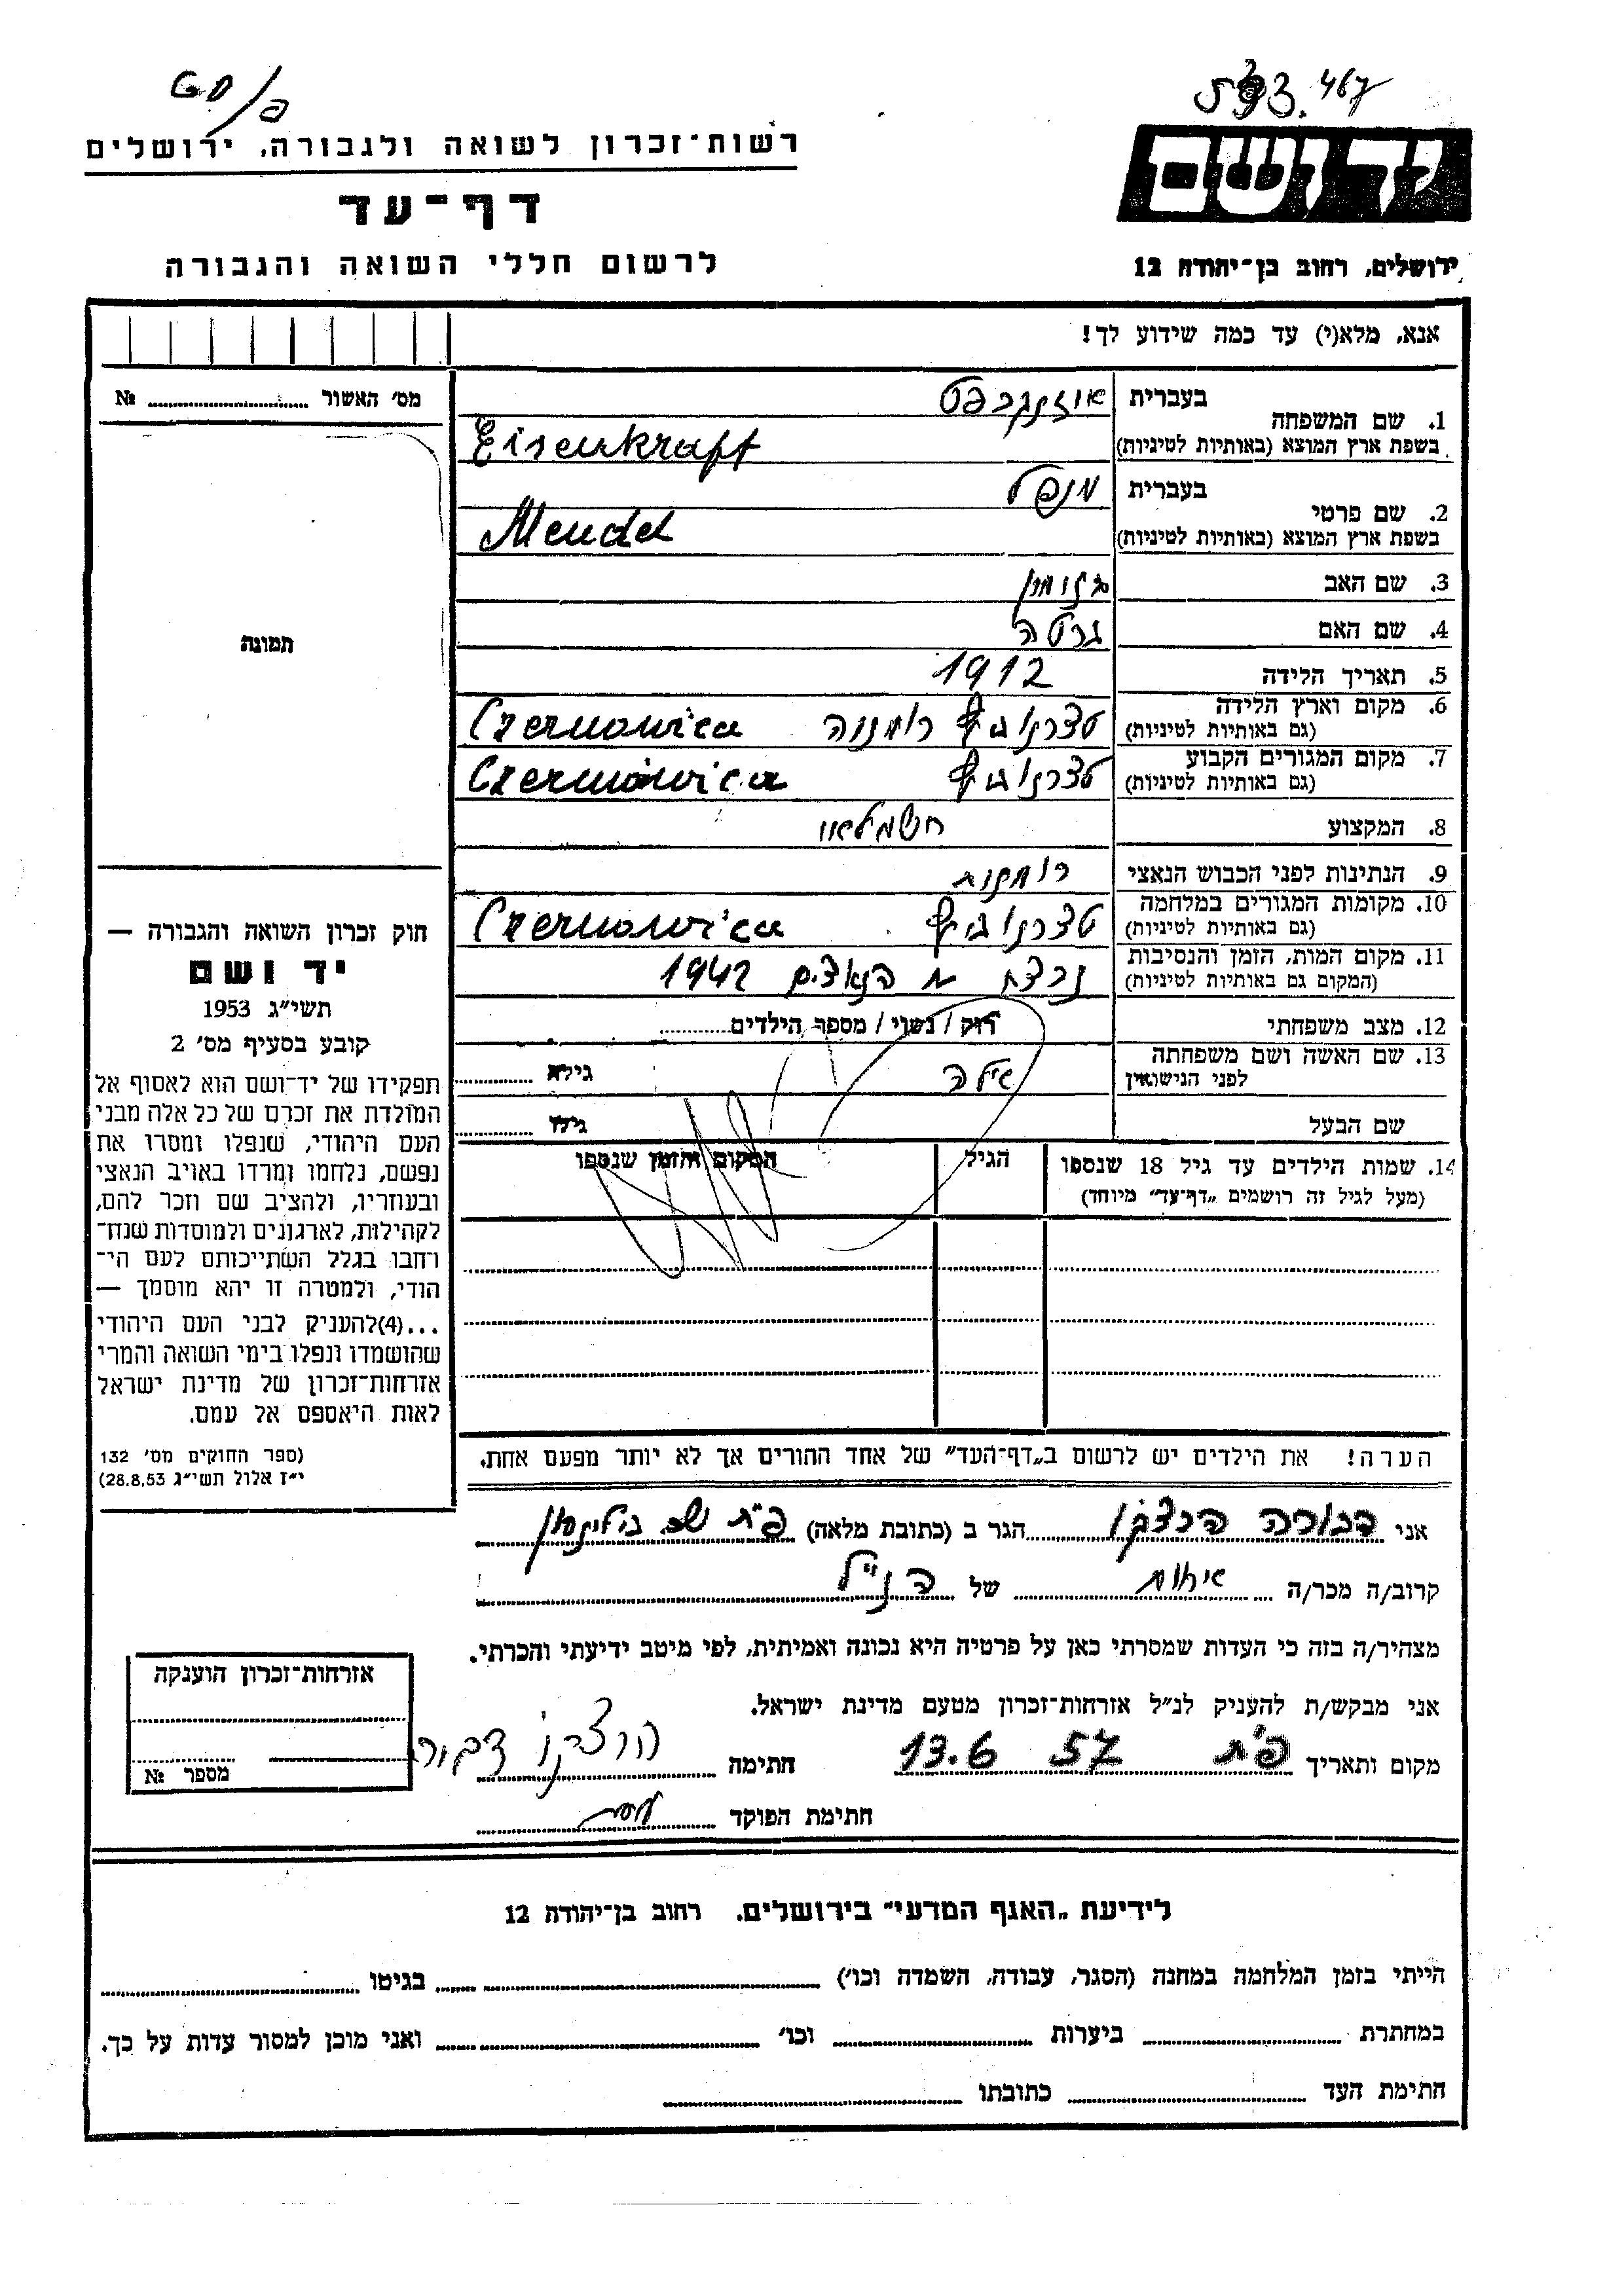 GD/פ
593.467
רשות־זכרון לשואה ולגבורה, ירושלים
ידושם
דף־עד
לרשום חללי השואה והגבורה
ירושלים, רחוב בן־יהודה 12
אנא, מלא(י) עד כמה שידוע לך!
מס' האשור № ........
1. שם המשפחה
בעברית
איזנקרפט
בשפת ארץ המוצא (באותיות לטיניות)
Eisenkraft
2. שם פרטי
בעברית
מנדל
בשפת ארץ המוצא (באותיות לטיניות)
Mendel
3. שם האב
4. שם האם ברטה
5. תאריך הלידה 1912
6. מקום וארץ הלידה
(גם באותיות לטיניות)
טצרנוביץ רומנוה Czernowica
7. מקום המגורים הקבוע
(גם באותיות לטיניות)
טצרנוביץ Czernowica
8. המקצוע חשמלאי
9. הנתינות לפני הכבוש הנאצי רומנית
10. מקומות המגורים במלחמה
(גם באותיות לטיניות)
טצרנוביץ Czernowica
11. מקום המות, הזמן והנסיבות
(המקום גם באותיות לטיניות)
נרצח מ הנאצים 1942
12. מצב משפחתי רוק / נשוי / מספר הילדים........
13. שם האשה ושם משפחתה
לפני הנישואין
אילה גילה ........
שם הבעל גילו ........
14. שמות הילדים עד גיל 18 שנספו
(מעל לגיל זה רושמים „דף־עד" מיוחד)
הגיל
המקום והזמן שנספו
הערה! את הילדים יש לרשום ב„דף־העד" של אחד ההורים אך לא יותר מפעם אחת.
תמונה
חוק זכרון השואה והגבורה —
יד ושם
תשי"ג 1953
קובע בסעיף מס' 2
תפקידו של יד־ושם הוא לאסוף אל
המולדת את זכרם של כל אלה מבני
העם היהודי, שנפלו ומסרו את
נפשם, נלחמו ומרדו באויב הנאצי
ובעוזריו, ולהציב שם וזכר להם,
לקהילות, לארגונים ולמוסדות שנח־
רחבו בגלל השתייכותם לעם הי־
הודי, ולמטרה זו יהא מוסמך —
...(4)להעניק לבני העם היהודי
שהושמדו ונפלו בימי השואה והמרי
אזרחות־זכרון של מדינת ישראל
לאות היאספם אל עמם.
(ספר החוקים מס' 132
י"ז אלול תשי"ג 28.8.53)
אני דבורה הרצקו הגר ב (כתובת מלאה) פ"ת שכ. בילינסון
קרוב/ה מכר/ה אחות של הנ"ל
מצהיר/ה בזה כי העדות שמסרתי כאן על פרטיה היא נכונה ואמיתית, לפי מיטב ידיעתי והכרתי.
אני מבקש/ת להעניק לנ"ל אזרחות־זכרון מטעם מדינת ישראל.
מקום ותאריך פ"ת 13.6 57 חתימה הרצקו דבורה
חתימת הפוקד
אזרחות־זכרון הוענקה
מספר №
לידיעת „האגף המדעי" בירושלים, רחוב בן־יהודה 12
הייתי בזמן המלחמה במחנה (הסגר, עבודה, השמדה וכו') ........ בגיטו ........
במחתרת ........ ביערות ........ וכו' ........ ואני מוכן למסור עדות על כך.
חתימת העד ........ כתובתו ........